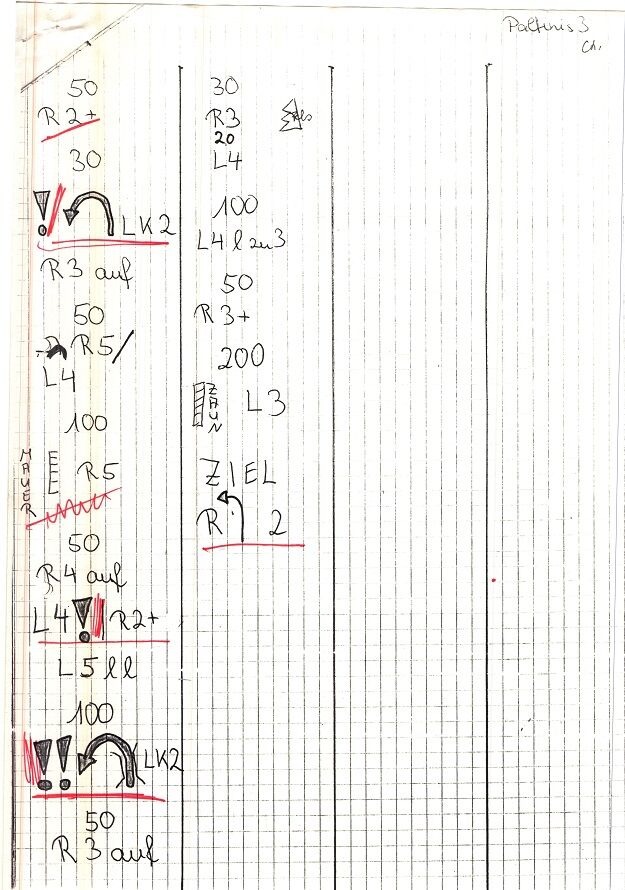 Paltinis 3
Ch.
50
R 2+
30
! LK2
R3 auf
50
R5/
L4
100
MAUER R5
50
R4 auf
L4 ! R2+
L5 ll
100
!! LK2
50
R 3 auf
30
R3
20
L4
100
L4 l zu 3
50
R 3+
200
ZAUN L3
ZIEL
R 2